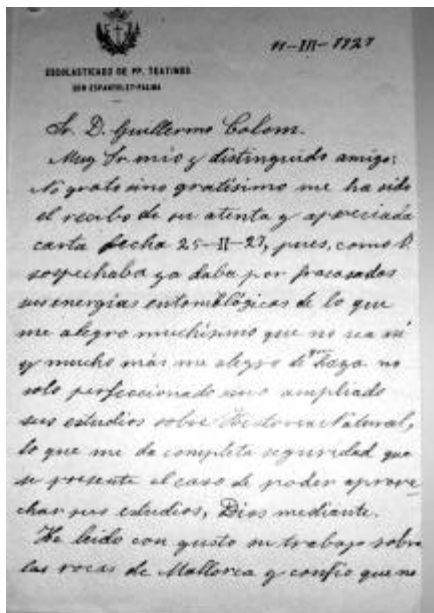 11-III-1927
ESCOLASTICADO DE PP. TEATINOS
SON ESPAÑOLET-PALMA
Sr. D. Guillermo Colom.
Muy Sr. mío y distinguido amigo:
No grato sino gratísimo me ha sido
el recibo de su atenta y apreciada
carta fecha 25-II-27, pues, como V.
sospechaba ya daba por fracasados
sus energías entomológicas de lo que
me alegro muchísimo que no sea así
y mucho más me alegro de que haya no
solo perfeccionado sino ampliado
sus estudios sobre Historia Natural,
lo que me da completa seguridad que
se presente el caso de poder aprove
char sus estudios, Dios mediante.
He leido con gusto su trabajo sobre
las rocas de Mallorca y confío que no